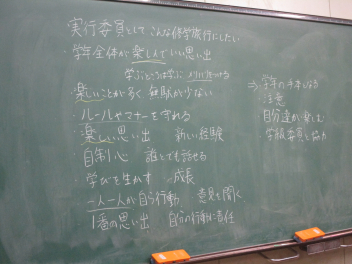 実行委員としてこんな修学旅行にしたい
・学年全体が楽しんでいい思い出
学ぶところは学ぶ メリハリをつける
・楽しいことが多く、無駄が少ない
・ルールやマナーを守れる
・楽しい思い出 新しい経験
・自制心 誰とでも話せる
・学びを生かす →成長
・一人一人が自ら行動 意見を聞く
・1番の思い出 自分の行動に責任
⇒・学年の手本となる
・注意
・自分達が楽しむ
・学級委員と協力